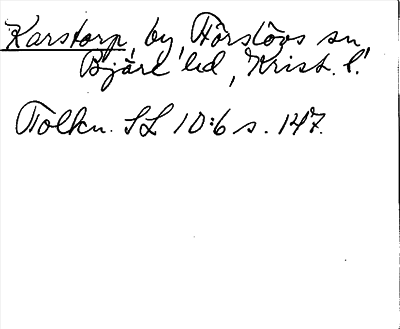 Karstorp, by, Förslövs sn
Bjäre hd, Krist. l.
Tolkn. SL 10:6 s. 147.